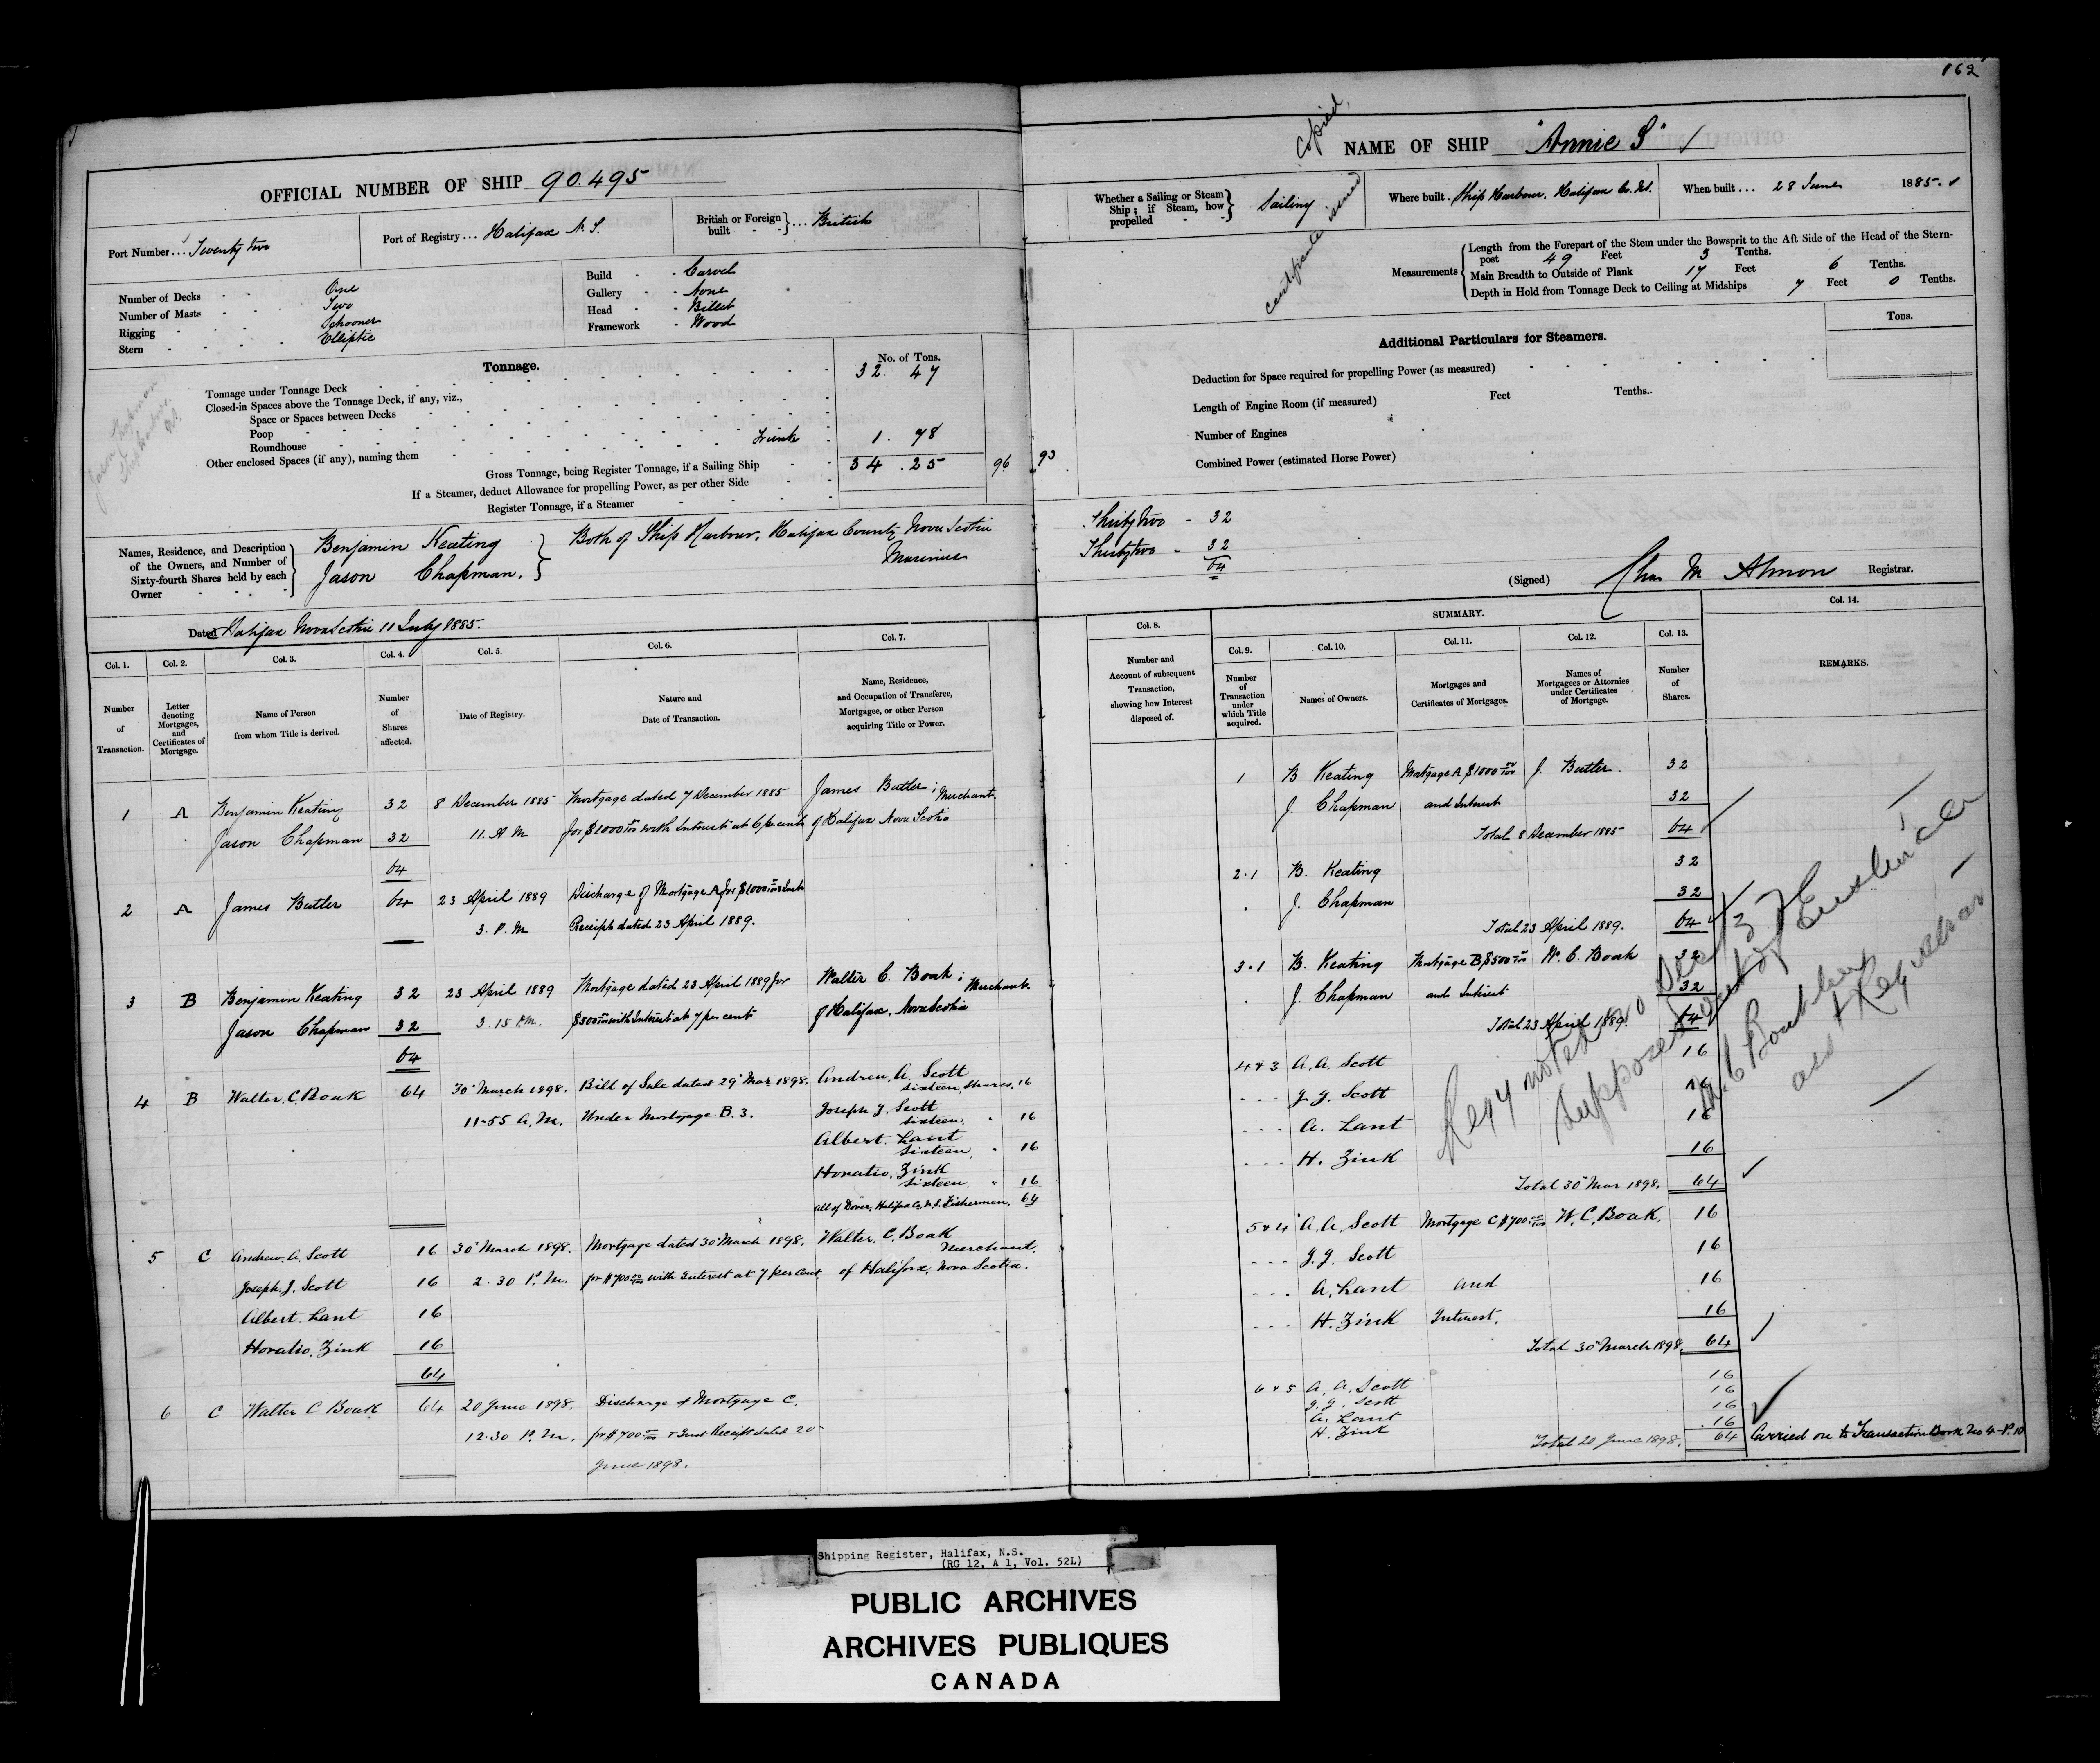 162
OFFICIAL NUMBER OF SHIP 90.495
Port Number ... Twenty two
Port of Registry ... Halifax N. S.
British or Foreign built ... British
Number of Decks One
Number of Masts Two
Rigging Schooner
Stern Elliptic
Build Carvel
Gallery None
Head Billet
Framework Wood
Tonnage.
No. of Tons.
Tonnage under Tonnage Deck 32. 47
Closed-in Spaces above the Tonnage Deck, if any, viz.,
Space or Spaces between Decks
Poop
Roundhouse
Other enclosed Spaces (if any), naming them Trunk 1. 78
Gross Tonnage, being Register Tonnage, if a Sailing Ship 34 . 25 96 93
If a Steamer, deduct Allowance for propelling Power, as per other Side
Register Tonnage, if a Steamer
Jason Chapman
Ship Harbour
N.S.
Names, Residence, and Description of the Owners, and Number of Sixty-fourth Shares held by each Owner
Benjamin Keating
Jason Chapman.
Both of Ship Harbour, Halifax County Nova Scotia
Mariners
Dated Halifax Nova Scotia 11 July 1885.
Copied
certificate issued
NAME OF SHIP "Annie S"
Whether a Sailing or Steam Ship; if Steam, how propelled Sailing
Where built . Ship Harbour, Halifax Co. N.S.
When built ... 28 June 1885.
Measurements
Length from the Forepart of the Stem under the Bowsprit to the Aft Side of the Head of the Stern-
post 49 Feet 3 Tenths.
Main Breadth to Outside of Plank 17 Feet 6 Tenths.
Depth in Hold from Tonnage Deck to Ceiling at Midships 7 Feet 0 Tenths.
Additional Particulars for Steamers.
Tons.
Deduction for Space required for propelling Power (as measured)
Length of Engine Room (if measured) Feet Tenths.
Number of Engines
Combined Power (estimated Horse Power)
Thirty two - 32
Thirty two - 32
64
(Signed) Chas M Almon Registrar.
Col. 1. Col. 2. Col. 3. Col. 4. Col. 5. Col. 6. Col. 7.
Number of Transaction.
Letter denoting Mortgages, and Certificates of Mortgage.
Name of Person from whom Title is derived.
Number of Shares affected.
Date of Registry.
Nature and Date of Transaction.
Name, Residence, and Occupation of Transferee, Mortgagee, or other Person acquiring Title or Power.
1 A Benjamin Keating 32 8 December 1885 Mortgage dated 7 December 1885 James Butler; Merchant.
Jason Chapman 32 11. A M for $1000 00/100 with Interest at 6 per cent of Halifax Nova Scotia
64
2 A James Butler 64 23 April 1889 Discharge of Mortgage A for $1000
3. P. M Receipt dated 23 April 1889.
3 B Benjamin Keating 32 23 April 1889 Mortgage dated 23 April 1889 for Walter C. Boak; Merchant
Jason Chapman 32 3. 15 P.M. $500 00/100 with Interest at 7 per cent of Halifax. Nova Scotia
64
4 B Walter. C. Boak 64 30 March 1898. Bill of Sale dated 29 Mar 1898. Andrew. A. Scott sixteen, shares, 16
11-55 A. M. Under Mortgage B. 3. Joseph J. Scott sixteen. " 16
Albert. Lant sixteen. " 16
Horatio. Zink sixteen. " 16
All of Dover, Halifax Co, N.S. Fishermen. 64
5 C Andrew. A. Scott 16 30 March 1898. Mortgage dated 30 March 1898. Walter. C. Boak Merchant.
Joseph. J. Scott 16 2. 30 P. M. for $700 00/100 with Interest at 7 per cent. of Halifax, Nova Scotia.
Albert. Lant 16
Horatio. Zink 16
64
6 C Walter C Boak 64 20 June 1898. Discharge of Mortgage C.
12.30 P. M. for $700 00/100 & Int Receipt dated 20
June 1898.
Col. 8.
Number and Account of subsequent Transaction, showing how Interest disposed of.
SUMMARY.
Col. 9. Col. 10. Col. 11. Col. 12. Col. 13. Col. 14.
Number of Transaction under which Title acquired.
Names of Owners.
Mortgages and Certificates of Mortgages.
Names of Mortgagees or Attornies under Certificates of Mortgage.
Number of Shares.
REMARKS.
1 B Keating Mortgage A $1000 00/100 J. Butler. 32
J. Chapman and Interest 32
Total 8 December 1885 64
2.1 B. Keating 32
J. Chapman 32
Total 23 April 1889. 64
3.1 B. Keating Mortgage B $500 00/100 W. C. Boak 32
J. Chapman and Interest 32
Total 23 April 1889. 64
4 & 3 A. A. Scott 16
J. J. Scott 16
A. Lant 16
H. Zink 16
Total 30 Mar 1898. 64
5 & 4 A. A. Scott Mortgage C $700. 00/100 W. C. Boak. 16
J. J. Scott 16
A. Lant and 16
H. Zink Interest. 16
Total 30 March 1898. 64
6 & 5 A. A. Scott 16
J. J. Scott 16
A. Lant 16
H. Zink 16
Total 20 June 1898. 64 Carried on to Transaction Book No 4 - P. 10
Regy noted
supposed out of Existence
Shipping Register, Halifax, N.S.
(RG 12, A 1, Vol. 52L)
PUBLIC ARCHIVES
ARCHIVES PUBLIQUES
CANADA